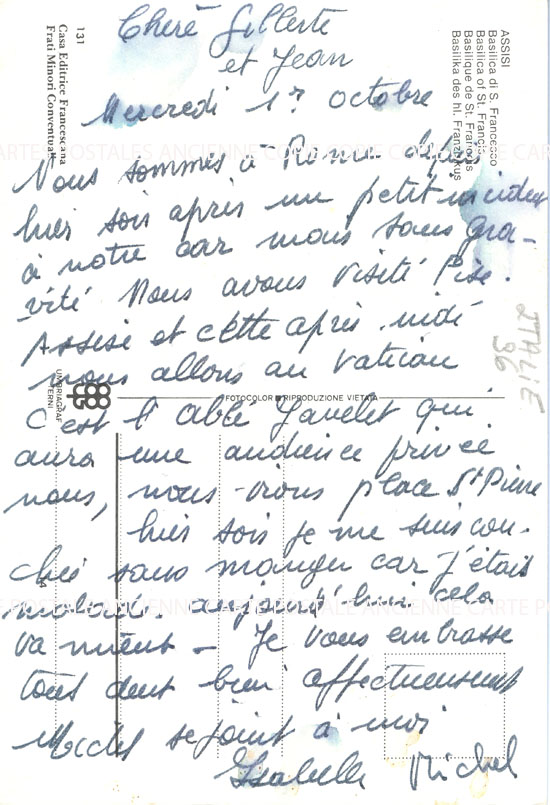 Cheré Gilberte
et Jean
Mercredi 17 octobre
Nous sommes à Rome depuis
hier soir après un petit incident
à notre car mais sans gra-
vité Nous avons visité Pise.
Assise et cette après midi
nous allons au Vatican
C'est l'abbé Javelet qui
aura une audience privée
nous, nous irons place St Pierre
hier soir je me suis cou-
ché sans manger car j'étais
aujourd'hui cela
va mieux - Je vous embrasse
tous deux bien affectueusement
se joint à moi
Isabelle Michel
ASSISI
Basilica di S. Francesco
Basilica of St. Francis
Basilique de St. François
Basilika des hl. Franziskus
131
Casa Editrice Francescana
Frati Minori Conventuali
UMBRIAGRAF
TERNI
FOTOCOLOR RIPRODUZIONE VIETATA
ITALIE
96
CARTE POSTALES ANCIENNE CARTE POSTALE ANCIENNE CARTE